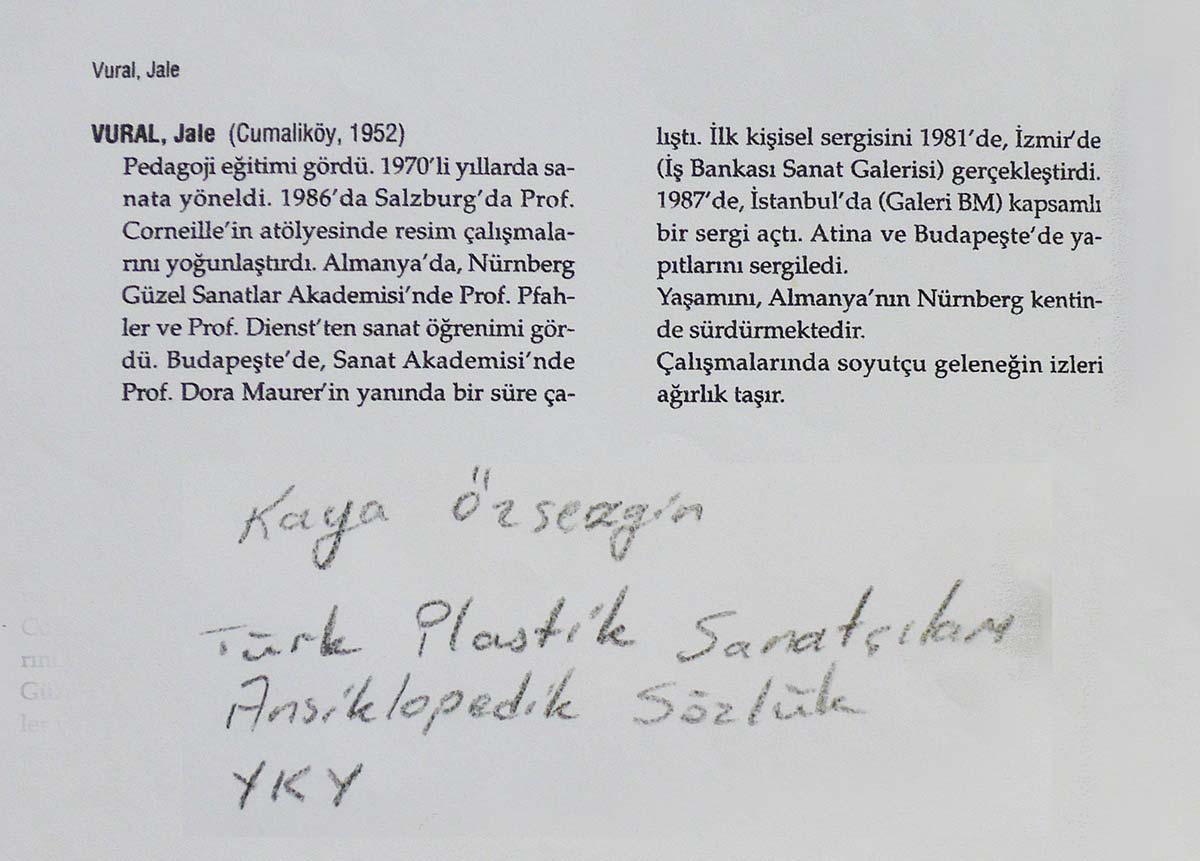 Vural, Jale
VURAL, Jale (Cumaliköy, 1952)
Pedagoji eğitimi gördü. 1970'li yıllarda sa-
nata yöneldi. 1986'da Salzburg'da Prof.
Corneille'in atölyesinde resim çalışmala-
rını yoğunlaştırdı. Almanya'da, Nürnberg
Güzel Sanatlar Akademisi'nde Prof. Pfah-
ler ve Prof. Dienst'ten sanat öğrenimi gör-
dü. Budapeşte'de, Sanat Akademisi'nde
Prof. Dora Maurer'in yanında bir süre ça-
lıştı. İlk kişisel sergisini 1981'de, İzmir'de
(İş Bankası Sanat Galerisi) gerçekleştirdi.
1987'de, İstanbul'da (Galeri BM) kapsamlı
bir sergi açtı. Atina ve Budapeşte'de ya-
pıtlarını sergiledi.
Yaşamını, Almanya'nın Nürnberg kentin-
de sürdürmektedir.
Çalışmalarında soyutçu geleneğin izleri
ağırlık taşır.
Kaya Özsezgin
Türk Plastik Sanatçıları
Ansiklopedik Sözlük
YKY